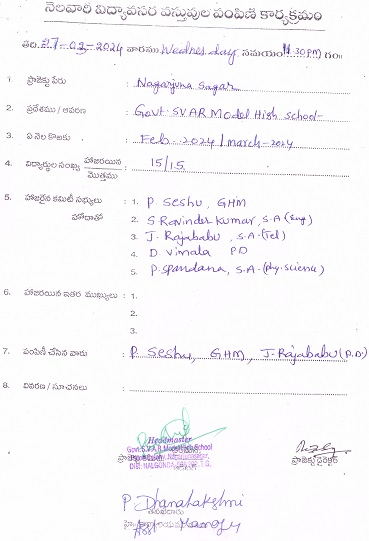 నెలవారి విద్యావసర వస్తువుల పంపిణి కార్యక్రమం
తేది: 27-02-2024 వారము Wednesday సమయం 4.30PM గం॥
1. ప్రాజెక్టు పేరు : Nagarjuna Sagar
2. ప్రదేశము / ఆవరణ : Govt. SVAR Model High School-
3. ఏ నెల కొఱకు : Feb-2024 / march-2024
4. విద్యార్థుల సంఖ్య హాజరయిన / మొత్తము : 15/15
5. హాజరైన కమిటీ సభ్యులు : 1. P. Seshu, GHM
2. S. Ravinder Kumar, S.A (Eng)
3. J. Rajababu, S.A. (Tel)
4. D. Vimala PD
5. P. Spandana, S.A. (Phy. Science)
6. హాజరయిన ఇతర ముఖ్యులు : 1.
2.
3.
7. పంపిణీ చేసిన వారు : P Seshu, GHM, J. Rajababu (P.D)
8. వివరణ / సూచనలు :
Headmaster
Govt. S.V.A.R. Model High School
DIST. NALGONDA T.G.
ప్రాజెక్టు డైరెక్టర్
P Dhanalakshmi